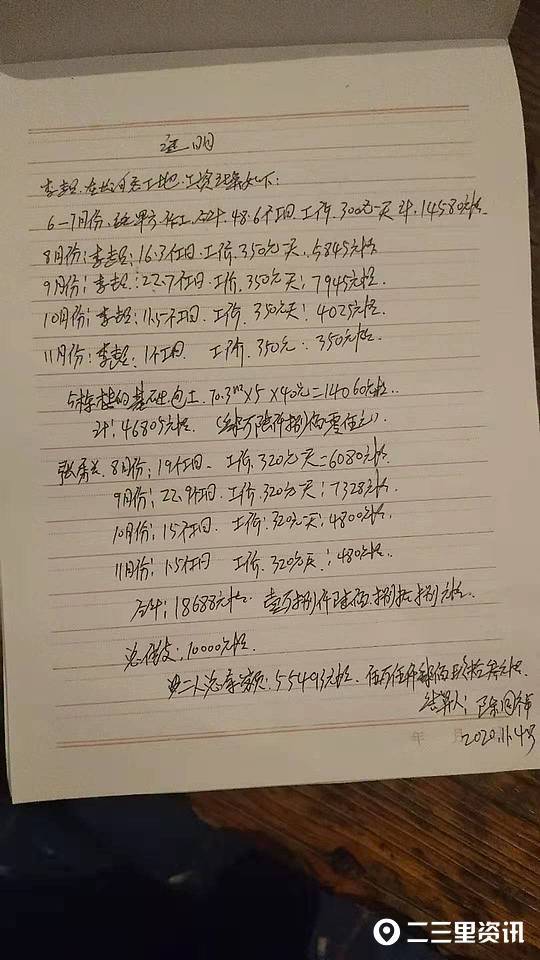 证明
李 在 工地. 工资 如下:
6—7月份. 甲方 工. 合计. 48.6个工日. 工价. 300元一天 计. 14580元整.
8月份: 李 : 16.7个工日. 工价. 350元一天. 5845元整
9月份: 李 : 22.7个工日. 工价. 350元一天: 7945元整.
10月份: 李 : 11.5个工日. 工价. 350元一天: 4025元整.
11月份: 李 : 1个工日 工价. 350元: 350元整.
5栋 基础 包工. 70.3m³×5×40元=14060元整.
计: 46805元整. (肆万陆仟捌佰零伍元)
张 8月份: 19个工日. 工价. 320元一天=6080元整.
9月份: 22.9个工日. 工价. 320元一天: 7328元整.
10月份: 15个工日. 工价. 320元一天: 4800元整.
11月份: 1.5个工日 工价. 320元一天: 480元整.
合计: 18688元整. 壹万捌仟陆佰捌拾捌元整.
总借支: 10000元整.
二人总 : 55493元整. 伍万伍仟肆佰玖拾叁元整.
结算人: 陈
2020.11.4号
年 月
二三里资讯